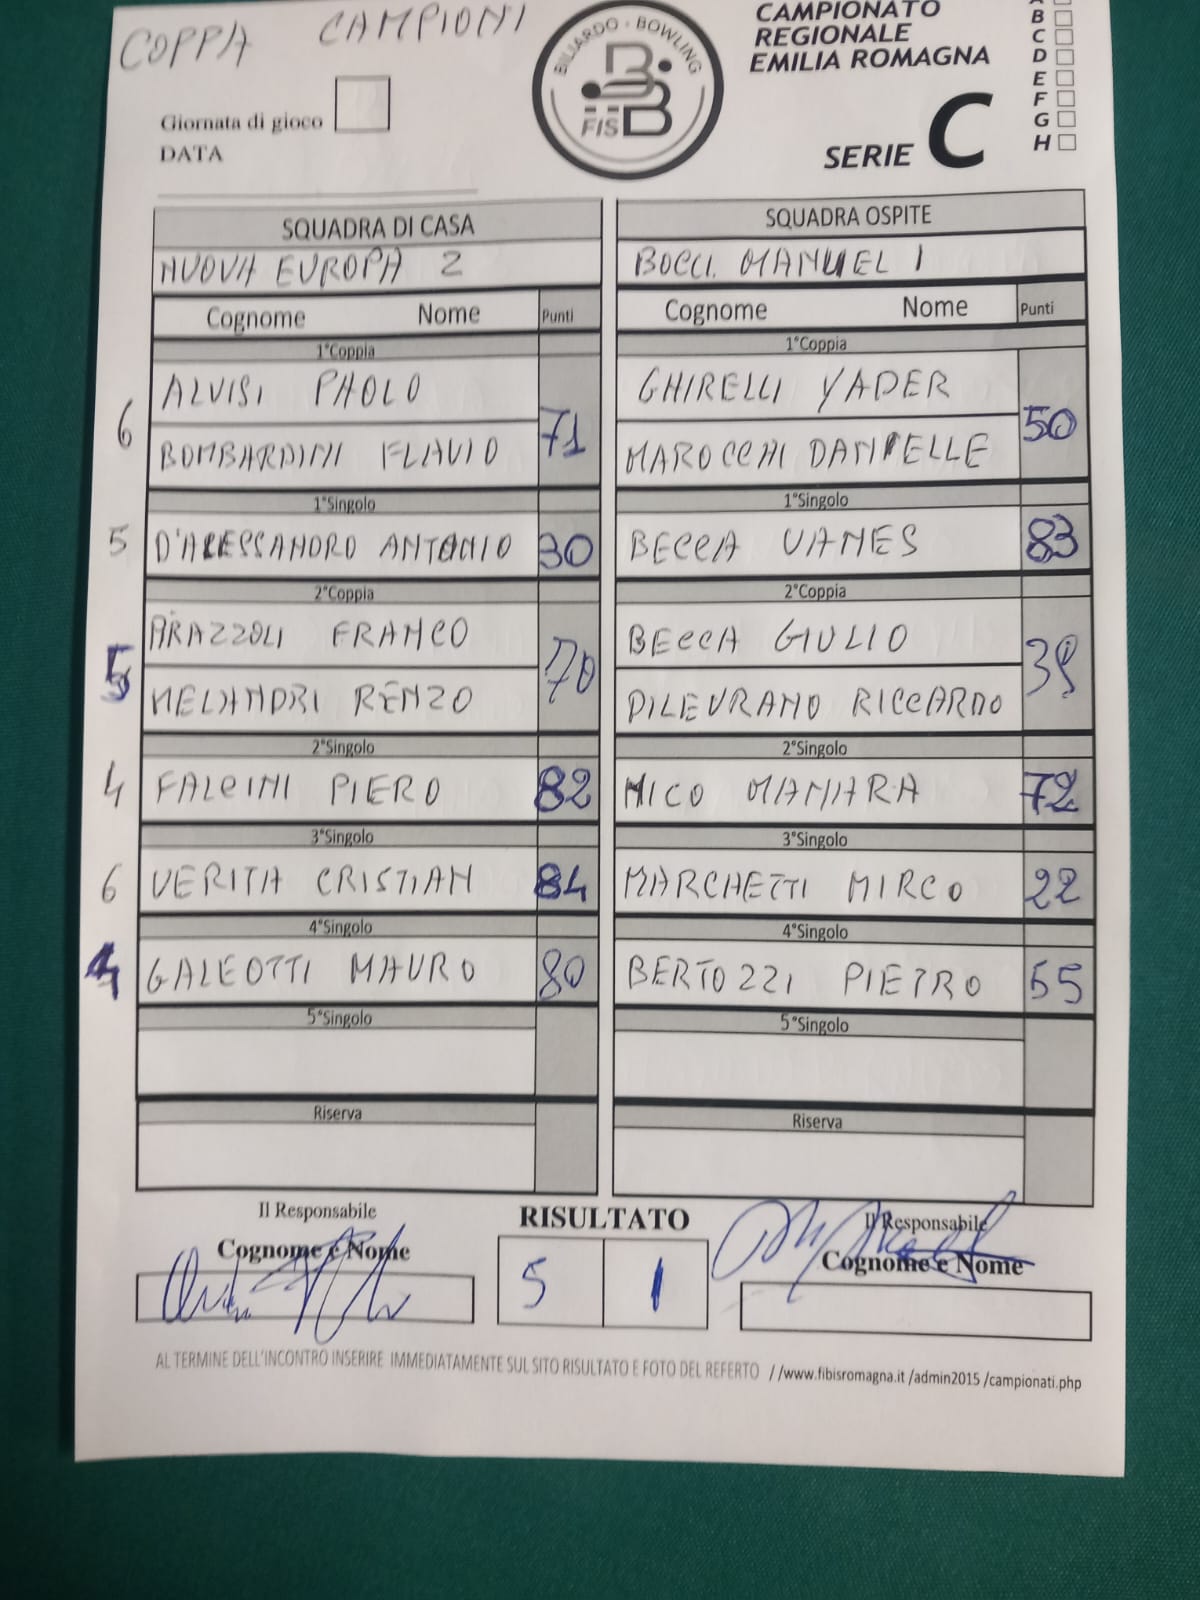 COPPA CAMPIONI
BILIARDO · BOWLING
FISBB
CAMPIONATO
REGIONALE
EMILIA ROMAGNA
SERIE C
A
B
C
D
E
F
G
H
Giornata di gioco
DATA
SQUADRA DI CASA
NUOVA EUROPA 2
Cognome Nome Punti
1°Coppia
6 ALVISI PAOLO 71
BOMBARDINI FLAVIO
1°Singolo
5 D'ALESSANDRO ANTONIO 30
2°Coppia
5 ARAZZOLI FRANCO 70
MELANDRI RENZO
2°Singolo
4 FALCINI PIERO 82
3°Singolo
6 VERITA CRISTIAN 84
4°Singolo
4 GALEOTTI MAURO 80
5°Singolo
Riserva
SQUADRA OSPITE
BOCC. MANUEL 1
Cognome Nome Punti
1°Coppia
GHIRELLI YADER 50
MAROCCHI DANIELLE
1°Singolo
BECCA VANES 83
2°Coppia
BECCA GIULIO 39
DILEVRANO RICCARDO
2°Singolo
MICO MANARA 72
3°Singolo
MARCHETTI MIRCO 22
4°Singolo
BERTOZZI PIETRO 55
5°Singolo
Riserva
Il Responsabile
Cognome e Nome
RISULTATO
5 1
Il Responsabile
Cognome e Nome
AL TERMINE DELL'INCONTRO INSERIRE IMMEDIATAMENTE SUL SITO RISULTATO E FOTO DEL REFERTO //www.fibisromagna.it /admin2015 /campionati.php